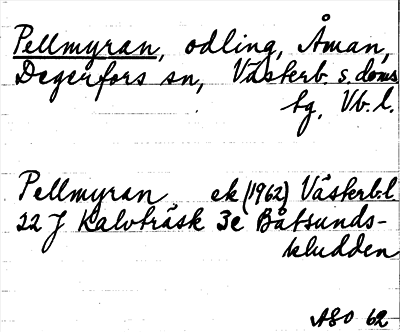 Pellmyran, odling, Åman,
Degerfors sn, Västerb. s. doms
tg, Vb. l.
Pellmyran ek (1962) Västerb.l.
22 J Kalvträsk 3e Båtsunds-
kludden
ASO 62